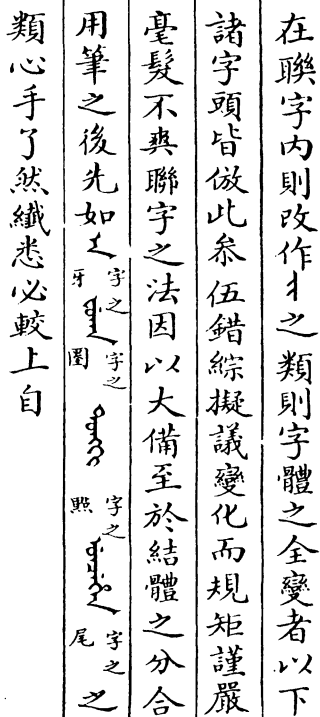 在聯字內則改作之類則字體之全變者以下
諸字頭皆倣此叅伍錯綜擬議變化而規矩謹嚴
毫髮不爽聯字之法因以大備至於結體之分合
用筆之後先如字之牙字之圈字之點字之尾之
類心手了然纖悉必較上自